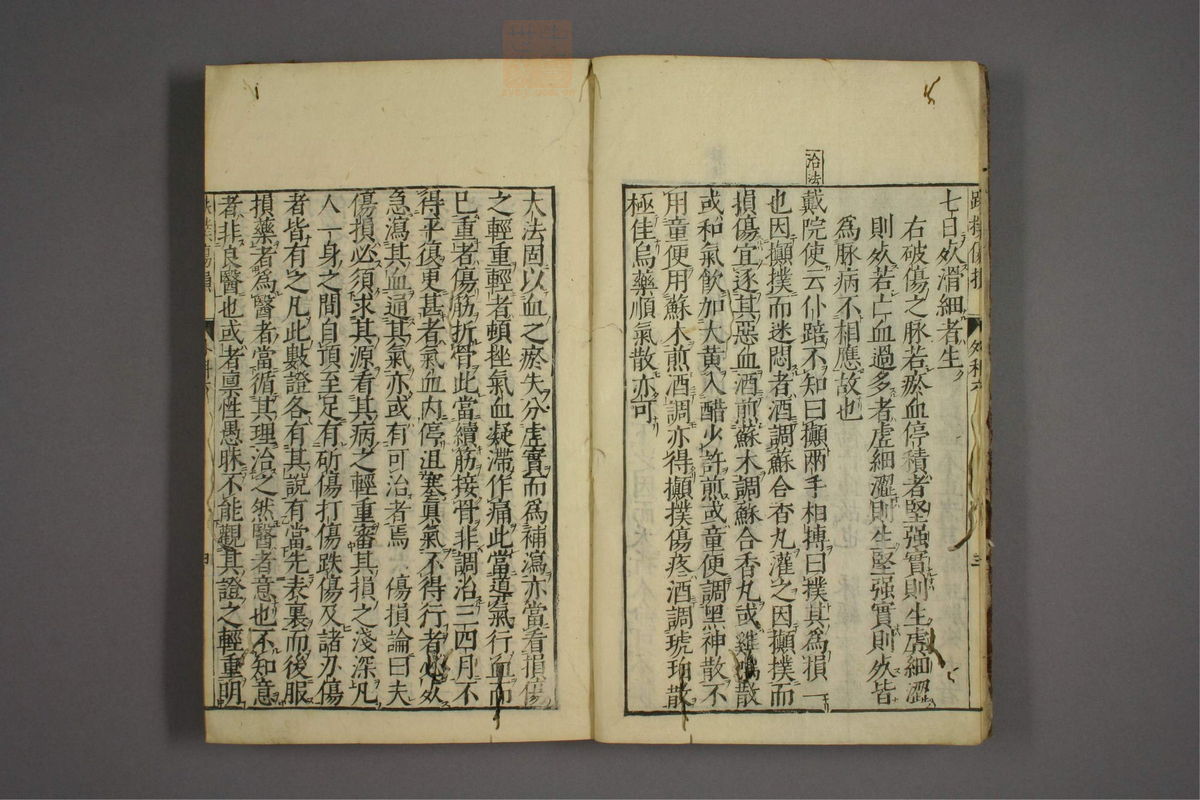 七日死滑細者生
右破傷之脉若瘀血停積者堅强實則生虚細澀
則死若亡血過多者虚細澀則生堅强實則死皆
爲脉病不相應故也
治法
戴院使云仆踣不知曰攧兩手相搏曰撲其爲損一
也因攧撲而迷悶者酒調蘇合香丸灌之因攧撲而
損傷宜逐其惡血酒煎蘇木調蘇合香丸或雞鳴散
或和氣飮加大黄入醋少許煎或童便調黑神散不
用童便用蘇木煎酒調亦得攧撲傷疼酒調琥珀散
極佳烏藥順氣散亦可
大法固以血之瘀失分虚實而爲補瀉亦當看損傷
之輕重輕者頓挫氣血凝滯作痛此當導氣行血而
已重者傷筋折骨此當續筋接骨非調治三四月不
得平復更甚者氣血内停沮塞眞氣不得行者必死
急瀉其血通其氣亦或有可治者焉 傷損論曰夫
傷損必須求其源看其病之輕重審其損之淺深凡
人一身之間自頂至足有斫傷打傷跌傷及諸刃傷
者皆有之凡此數證各有其說有當先表裏而後服
損藥者爲醫者當循其理治之然醫者意也不知意
者非良醫也或者禀性愚昧不能觀其證之輕重明